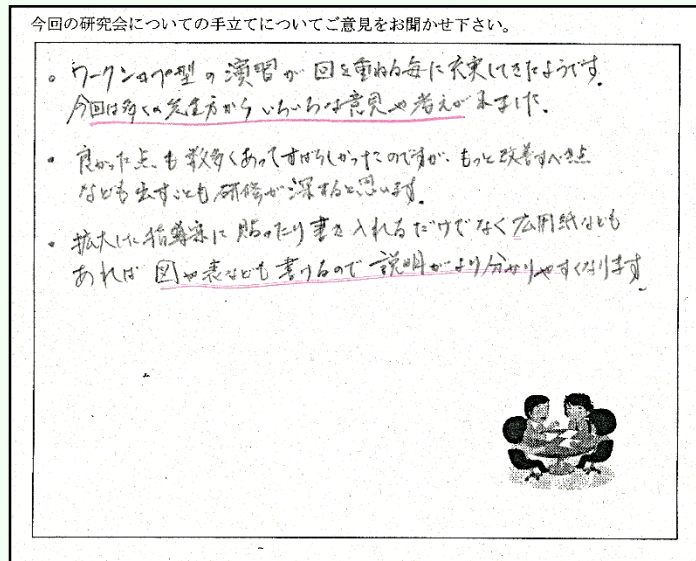 今回の研究会についての手立てについてご意見をお聞かせ下さい。
。ワークショップ型の演習が回を重ねる毎に充実してきたようです。
今回は多くの先生方からいろいろな意見や考えが出ました。
・良かった点も数多くあってすばらしかったのですが、もっと改善すべき点
なども出すことも研修が深まると思います。
・拡大した指導案に貼ったり書き入れるだけでなく広用紙なども
あれば図や表なども書けるので説明がより分かりやすくなります。